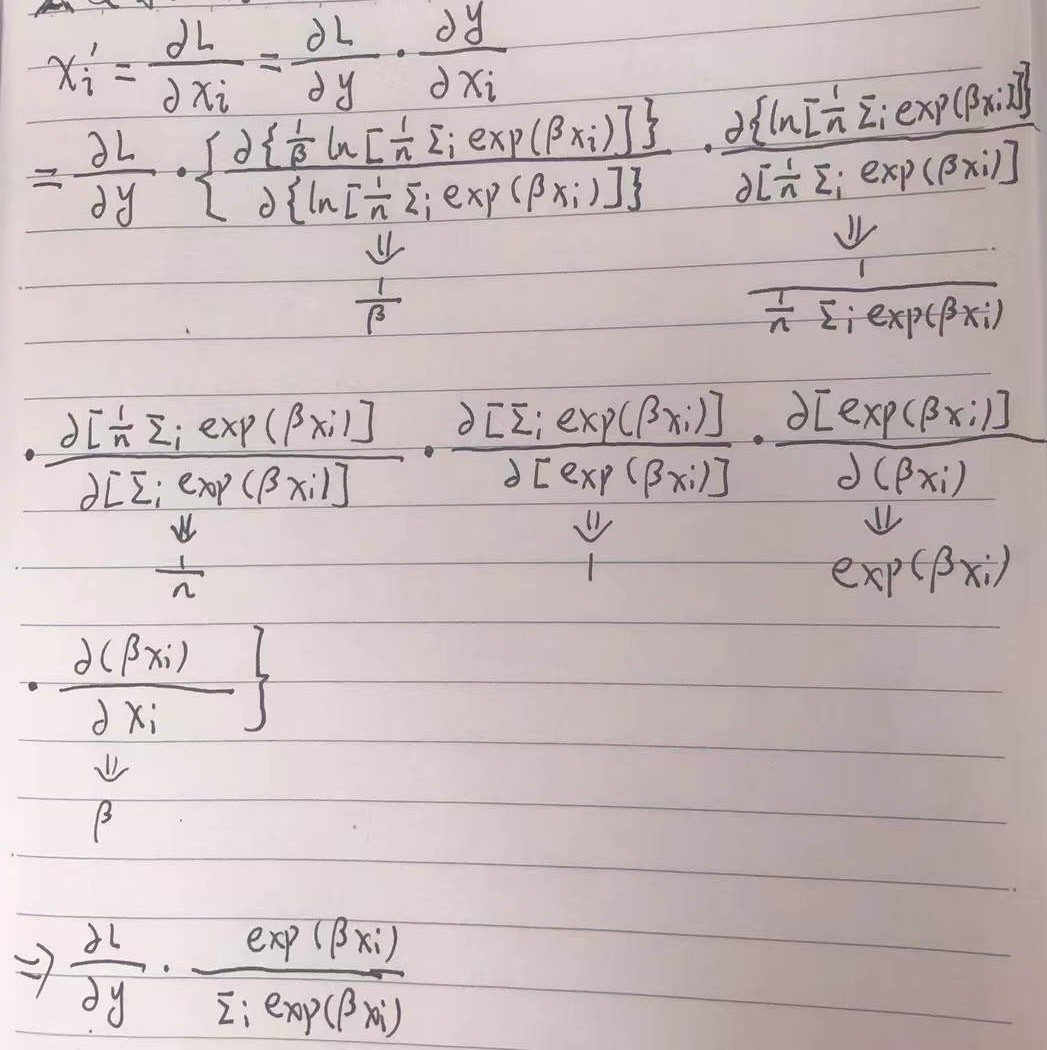 xᵢ' = ∂L/∂xᵢ = ∂L/∂y · ∂y/∂xᵢ
= ∂L/∂y · { ∂{1/β ln[1/n Σᵢ exp(βxᵢ)]} / ∂{ln[1/n Σᵢ exp(βxᵢ)]} · ∂{ln[1/n Σᵢ exp(βxᵢ)]} / ∂[1/n Σᵢ exp(βxᵢ)]
⇓ ⇓
1/β 1 / 1/n Σᵢ exp(βxᵢ)
· ∂[1/n Σᵢ exp(βxᵢ)] / ∂[Σᵢ exp(βxᵢ)] · ∂[Σᵢ exp(βxᵢ)] / ∂[exp(βxᵢ)] · ∂[exp(βxᵢ)] / ∂(βxᵢ)
⇓ ⇓ ⇓
1/n 1 exp(βxᵢ)
· ∂(βxᵢ) / ∂xᵢ }
⇓
β
⇒ ∂L/∂y · exp(βxᵢ) / Σᵢ exp(βxᵢ)